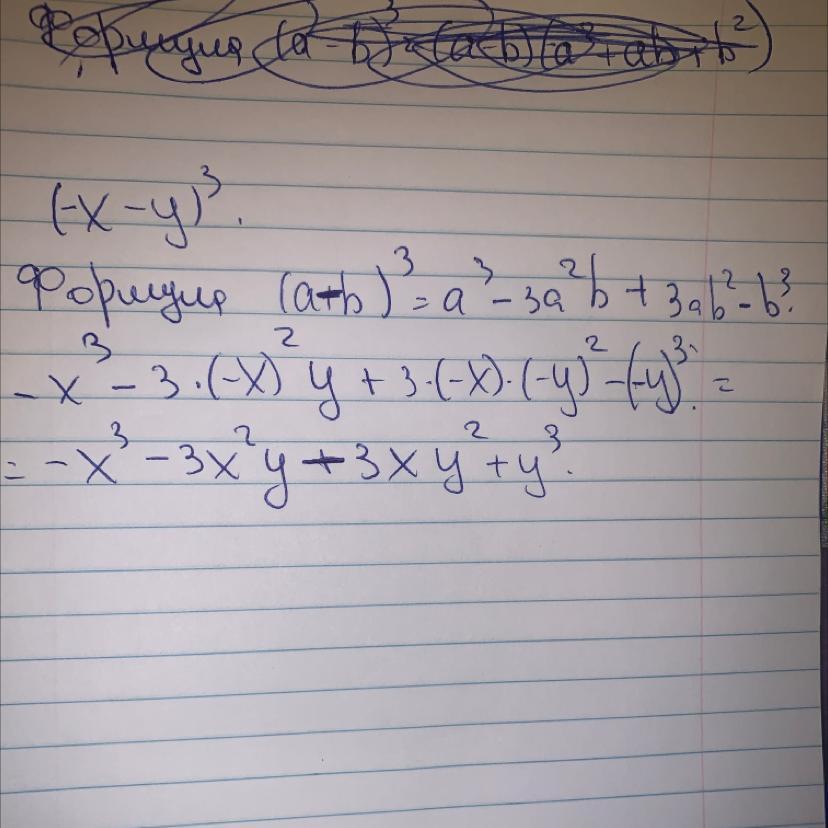 Формула (a-b)³=(a-b)(a²+ab+b²)
(-x-y)³.
Формула (a-b)³=a³-3a²b+3ab²-b³.
-x³-3·(-x)²y+3·(-x)·(-y)²-(-y)³.=
=-x³-3x²y-3xy²+y³.